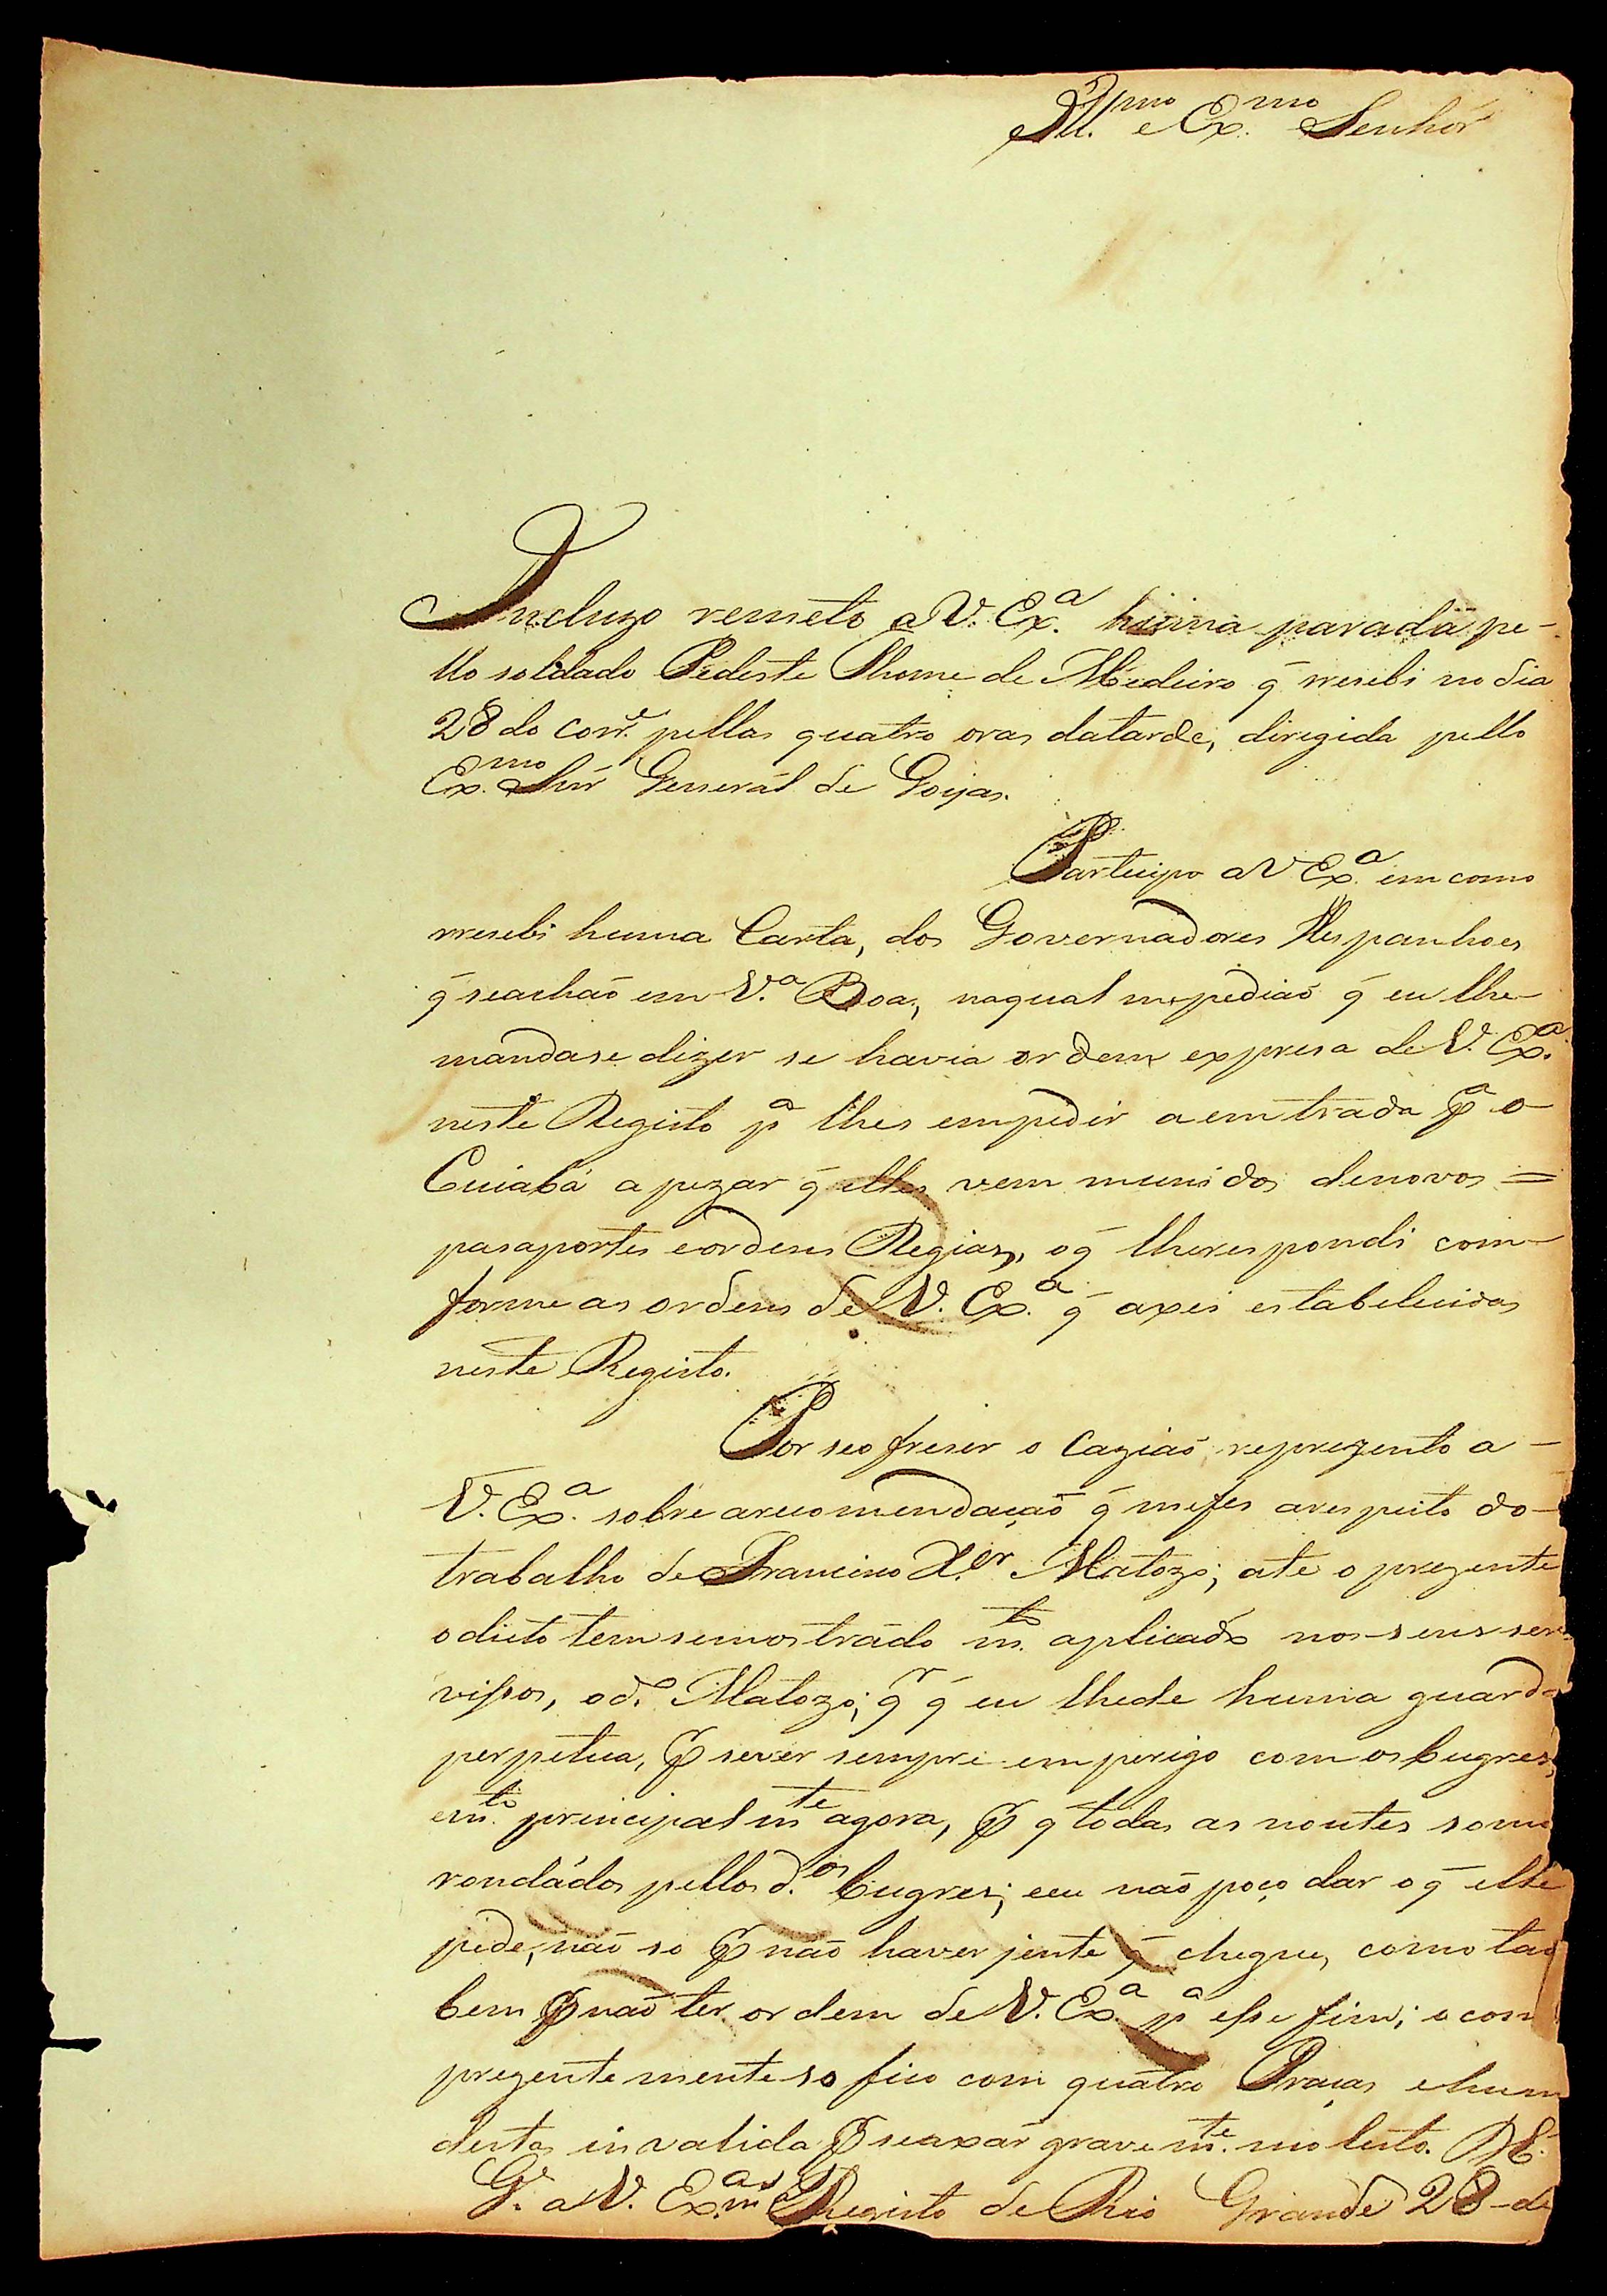 Ill.mo e Ex.mo Senhor
Incluzo remeto a V. Ex.a huma parada pe-
llo soldado Pedeste Thome de Medeiro q̃ rresebi no dia
28 do corr.e pellas quatro oras datarde, dirigida pello
Ex.mo Snr̃ General de Goyas.
Partecipo a V Ex.a em como
rresebi huma Carta, dos Governadores Hespanhoes
q̃ seachaõ em V.a Boa, naqual mepediaõ q̃ eu lhe
mandase dizer se havia ordem expresa de V. Ex.a
neste Registo p.a lhes empedir aemtrada p.a o
Cuiabá apezar q̃ elles vem munidos denovos =
pasaportes eordens Regias, oq̃ lherespondi com-
forme as ordens de V. Ex.a q̃ axei estabelecidas
neste Registo.
Por seofreser o Caziaõ reprezento a -
V. Ex.a sobre arecomendaçaõ q̃ mefes arespeito do-
trabalho de Francisco X.er Matozo; ate o prezente
odicto temsemostrádo m.to aplicado nos seus ser-
visos, od.o Matozo; q.r q̃ eu lhede huma guarda
perpetua, p.r sever sempre emperigo com os bugres,
em.to principalm.te agora, p.r q̃ todas as noutes somo
rondádos pellos d.os bugres; eeu naõ poço dar oq̃ elle
pede, naõ so p.r naõ haver jente q̃ chegue, como taõ
bem p.r naõ ter ordem de V. Ex.a p.a esse fim; o com
prezentemente so fico com quatro Praças ehum
destes invalida p.r seaxar gravem.te molesto. D.E.
G.e a V. Ex.a m.s a.s Registo de Rio Grande 28 de